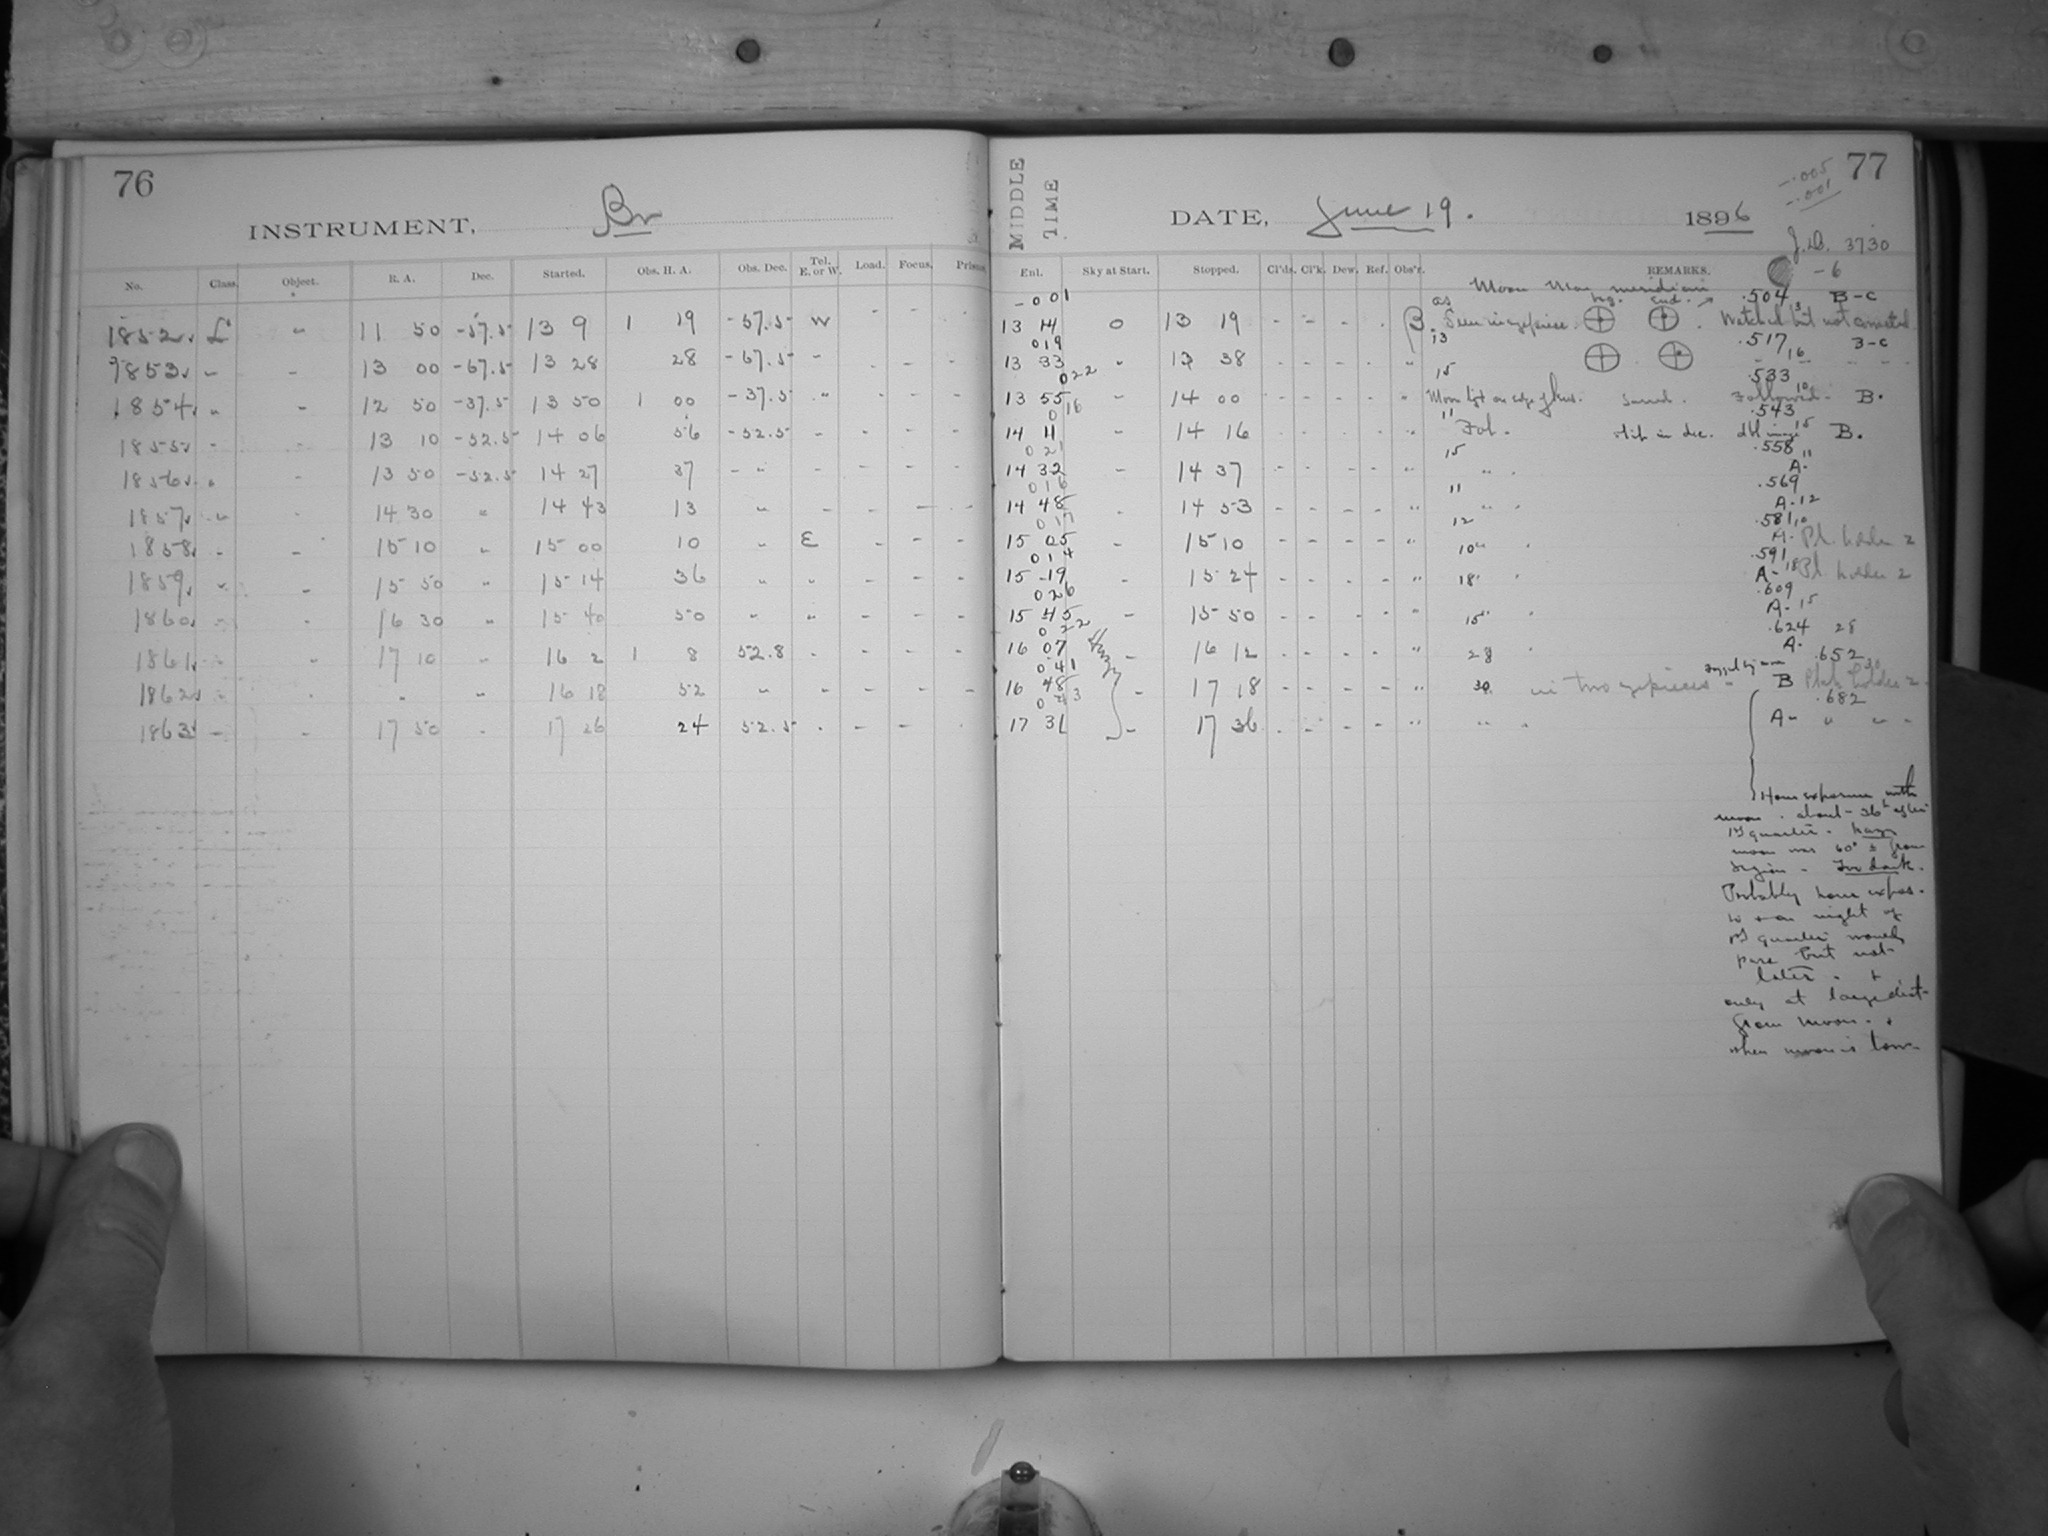 76
INSTRUMENT, Br
No. Class. Object. R. A. Dec. Started. Obs. H. A. Obs. Dec. Tel. E. or W. Load. Focus. Prisms.
1852. L " 11 50 -57.5 13 9 1 19 -57.5 W - - -
9853. " " 13 00 -67.5 13 28 28 -67.5 " - - -
1854. " " 12 50 -37.5 13 50 1 00 -37.5 " - - -
1855. " " 13 10 -52.5 14 06 56 -52.5 - - - -
1856. " - 13 50 -52.5 14 27 37 - " - - - -
1857. " - 14 30 " 14 43 13 " - - - -
1858. - - 15 10 " 15 00 10 " E - - -
1859. " - 15 50 " 15 14 36 " " - - -
1860. " - 16 30 " 15 40 50 " " - - -
1861. " " 17 10 " 16 2 1 8 52.8 - - - -
1862. " - - " 16 18 52 " " - - -
1863. - - 17 50 - 17 26 24 52.5 - - -
MIDDLE TIME
DATE, June 19. 1896
77
-.005
-.001
J.D. 3730
-6
Enl. Sky at Start. Stopped. Cl'ds. Cl'k. Dew. Ref. Obs'r. REMARKS.
Moon near meridian
-001 as beg. end. .504 13 B-C
13 14 0 13 19 - - - . B. Seen in eyepiece. Watched but not corrected
019 13 .517 16 B-C
13 33 " 13 38 - - - - "
022 15 .533 10
13 55 - 14 00 - - - - " Moon light on edge of Followed B.
016 11 .543 15
14 11 - 14 16 - - - - " Fol. slip in dec. dbl image B.
021 15 .558 11
14 32 - 14 37 - - - - " " A-
016 11 .569
14 48 - 14 53 - - - - " " A- 12
017 12 .581 10
15 05 - 15 10 - - - - " " A- Pl. holder 2
014 10 .591 18
15 19 - 15 24 - - - - " " A- Pl. holder 2
026 18 .609
15 45 - 15 50 - - - - " " A- 15
022 15 .624 28
16 07 - 16 12 - - - - " " A-
041 28 .652 30
16 48 - 17 18 - - - - " in two eyepieces B Plate holder 2
043 30 .682
17 31 - 17 36 - - - - " " A- " " "
Hour exposure with
moon about 36h after
1st quarter.
moon was 60° ± from
region - Too dark.
Probably hour expos.
on night of
1st quarter would
pass but not
later - +
only at large dist.
from moon - +
when moon is low.